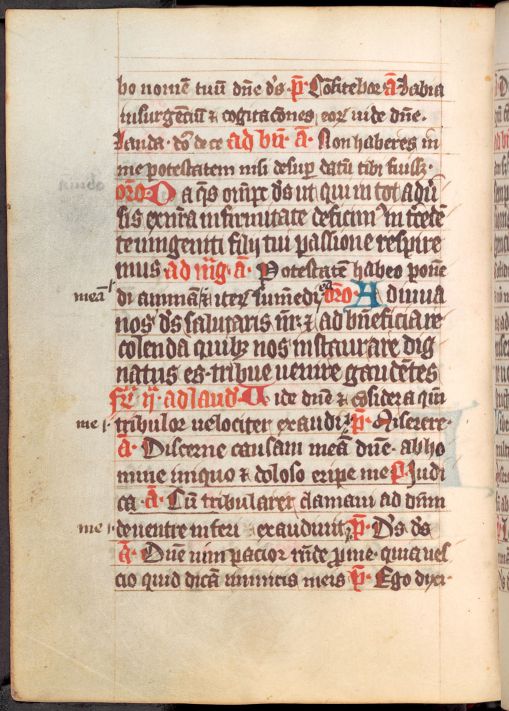 bo nomē tuū dn̄e ds̄ · p̄s Cōfitebor a᷒ Labia
insurgentiū & cogitac̄ones eoꝝ vide dn̄e ·
Lauda · do de ce ad bn̄ · a᷒ · Non haberes in
me potestatem nisi desuꝑ datū tibi fuissꝫ ·
oro Da q̄s om̄ps ds̄ ut qui in tot adū
sis ex nr̄a infirmitate deficimꝰ in t̄cedēte
vnigeniti filij tui passione respire
mus ad mḡ · a᷒ · Potestatē habeo pone
meā di animā & iteꝝ sumēdi eā oro · Adiuua
nos ds̄ salutaris nr̄ & ad bn̄eficia re
colenda quibꝫ nos instaurare dig
natus es · tribue uenire gaudētes
Fr̄ ij · ad laud̄ Vide dn̄e & cōsidera qm̄
me tribulor uelociter exaudi · p̄s · Miserere ·
a᷒ · Discerne causam meā dn̄e · ab ho
mine iniquo & doloso eripe me p̄s Judi
ca · a᷒ · Cū tribularer clamaui ad dn̄m
me de uentre inferi & exaudiuit p̄s · Ds̄ ds̄
a᷒ · Dn̄e uim pacior rn̄de ꝓ me · quia nes
cio quid dicā inimicis meis p̄s · Ego dixi ·